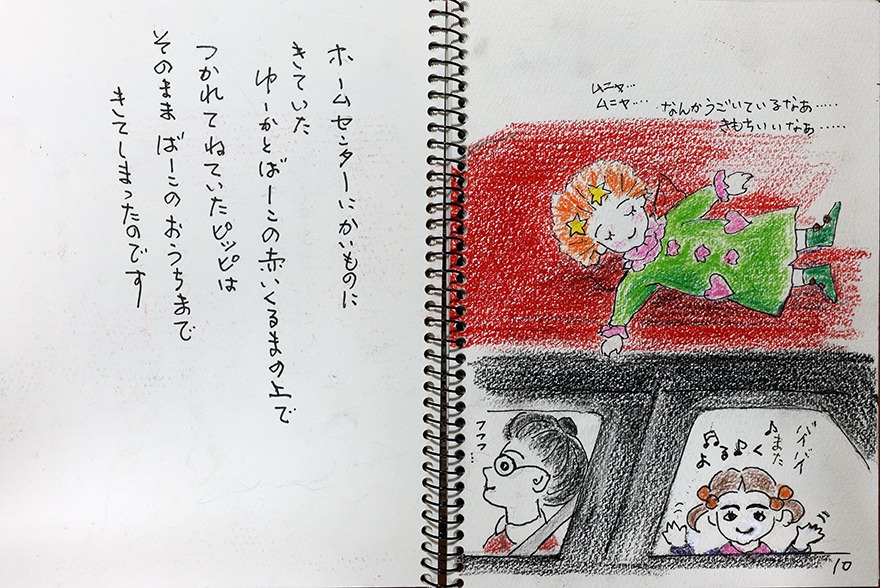 ホームセンターにかいものに
きていた
ゆーかとばーこの赤いくるまの上で
つかれてねていたピッピは
そのまま ばーこのおうちまで
きてしまったのです
ムニャ…
ムニャ…
なんかうごいているなあ……
きもちいいなあ……
フフフ…
バイバイ
♪また
よる♪く
10